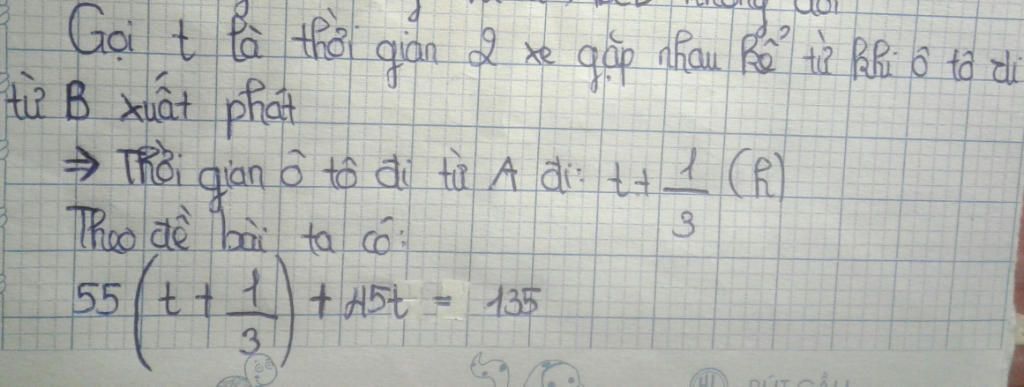 Gọi t là thời gian 2 xe gặp nhau kể từ khi ô tô đi
từ B xuất phát
⇒ Thời gian ô tô đi từ A đi: t + 1/3 (h)
Theo đề bài ta có:
55(t + 1/3) + 45t = 135